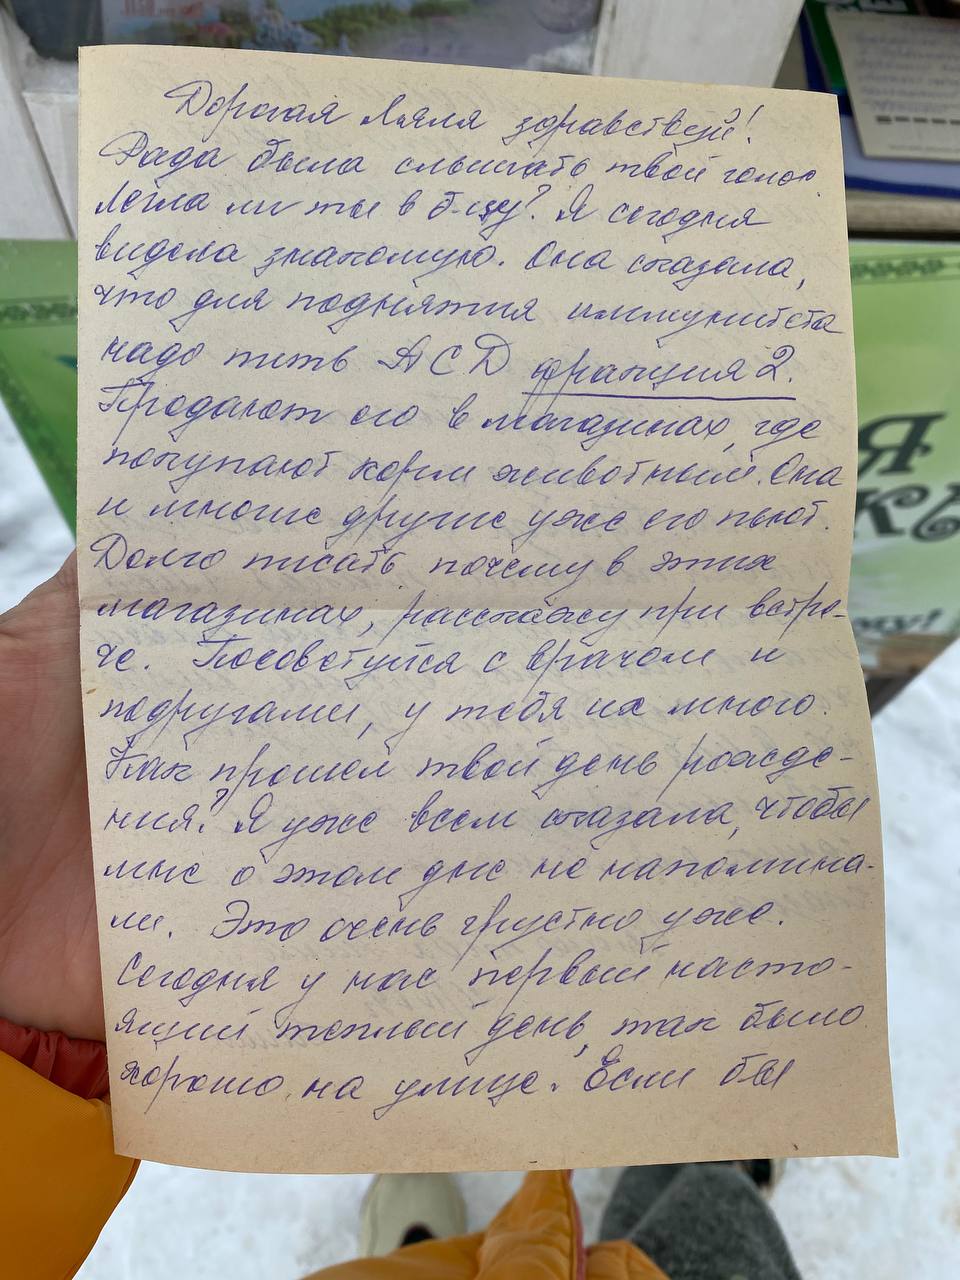 Дорогая Ляля здравствуй!
Рада была слышать твой голос.
Легла ли ты в б-цу? Я сегодня
видела знакомую. Она сказала,
что для поднятия иммунитета
надо пить АСД фракция 2.
Продают его в магазинах, где
покупают корм животным. Она
и многие другие уже его пьют.
Долго писать почему в этих
магазинах, расскажу при встре-
че. Посоветуйся с врачом и
подругами, у тебя их много.
Как прошел твой день рожде-
ния? Я уже всем сказала, чтобы
мне о этом дне не напомина-
ли. Это очень грустно уже.
Сегодня у нас первый насто-
ящий теплый день, так было
хорошо на улице. Если бы
Я